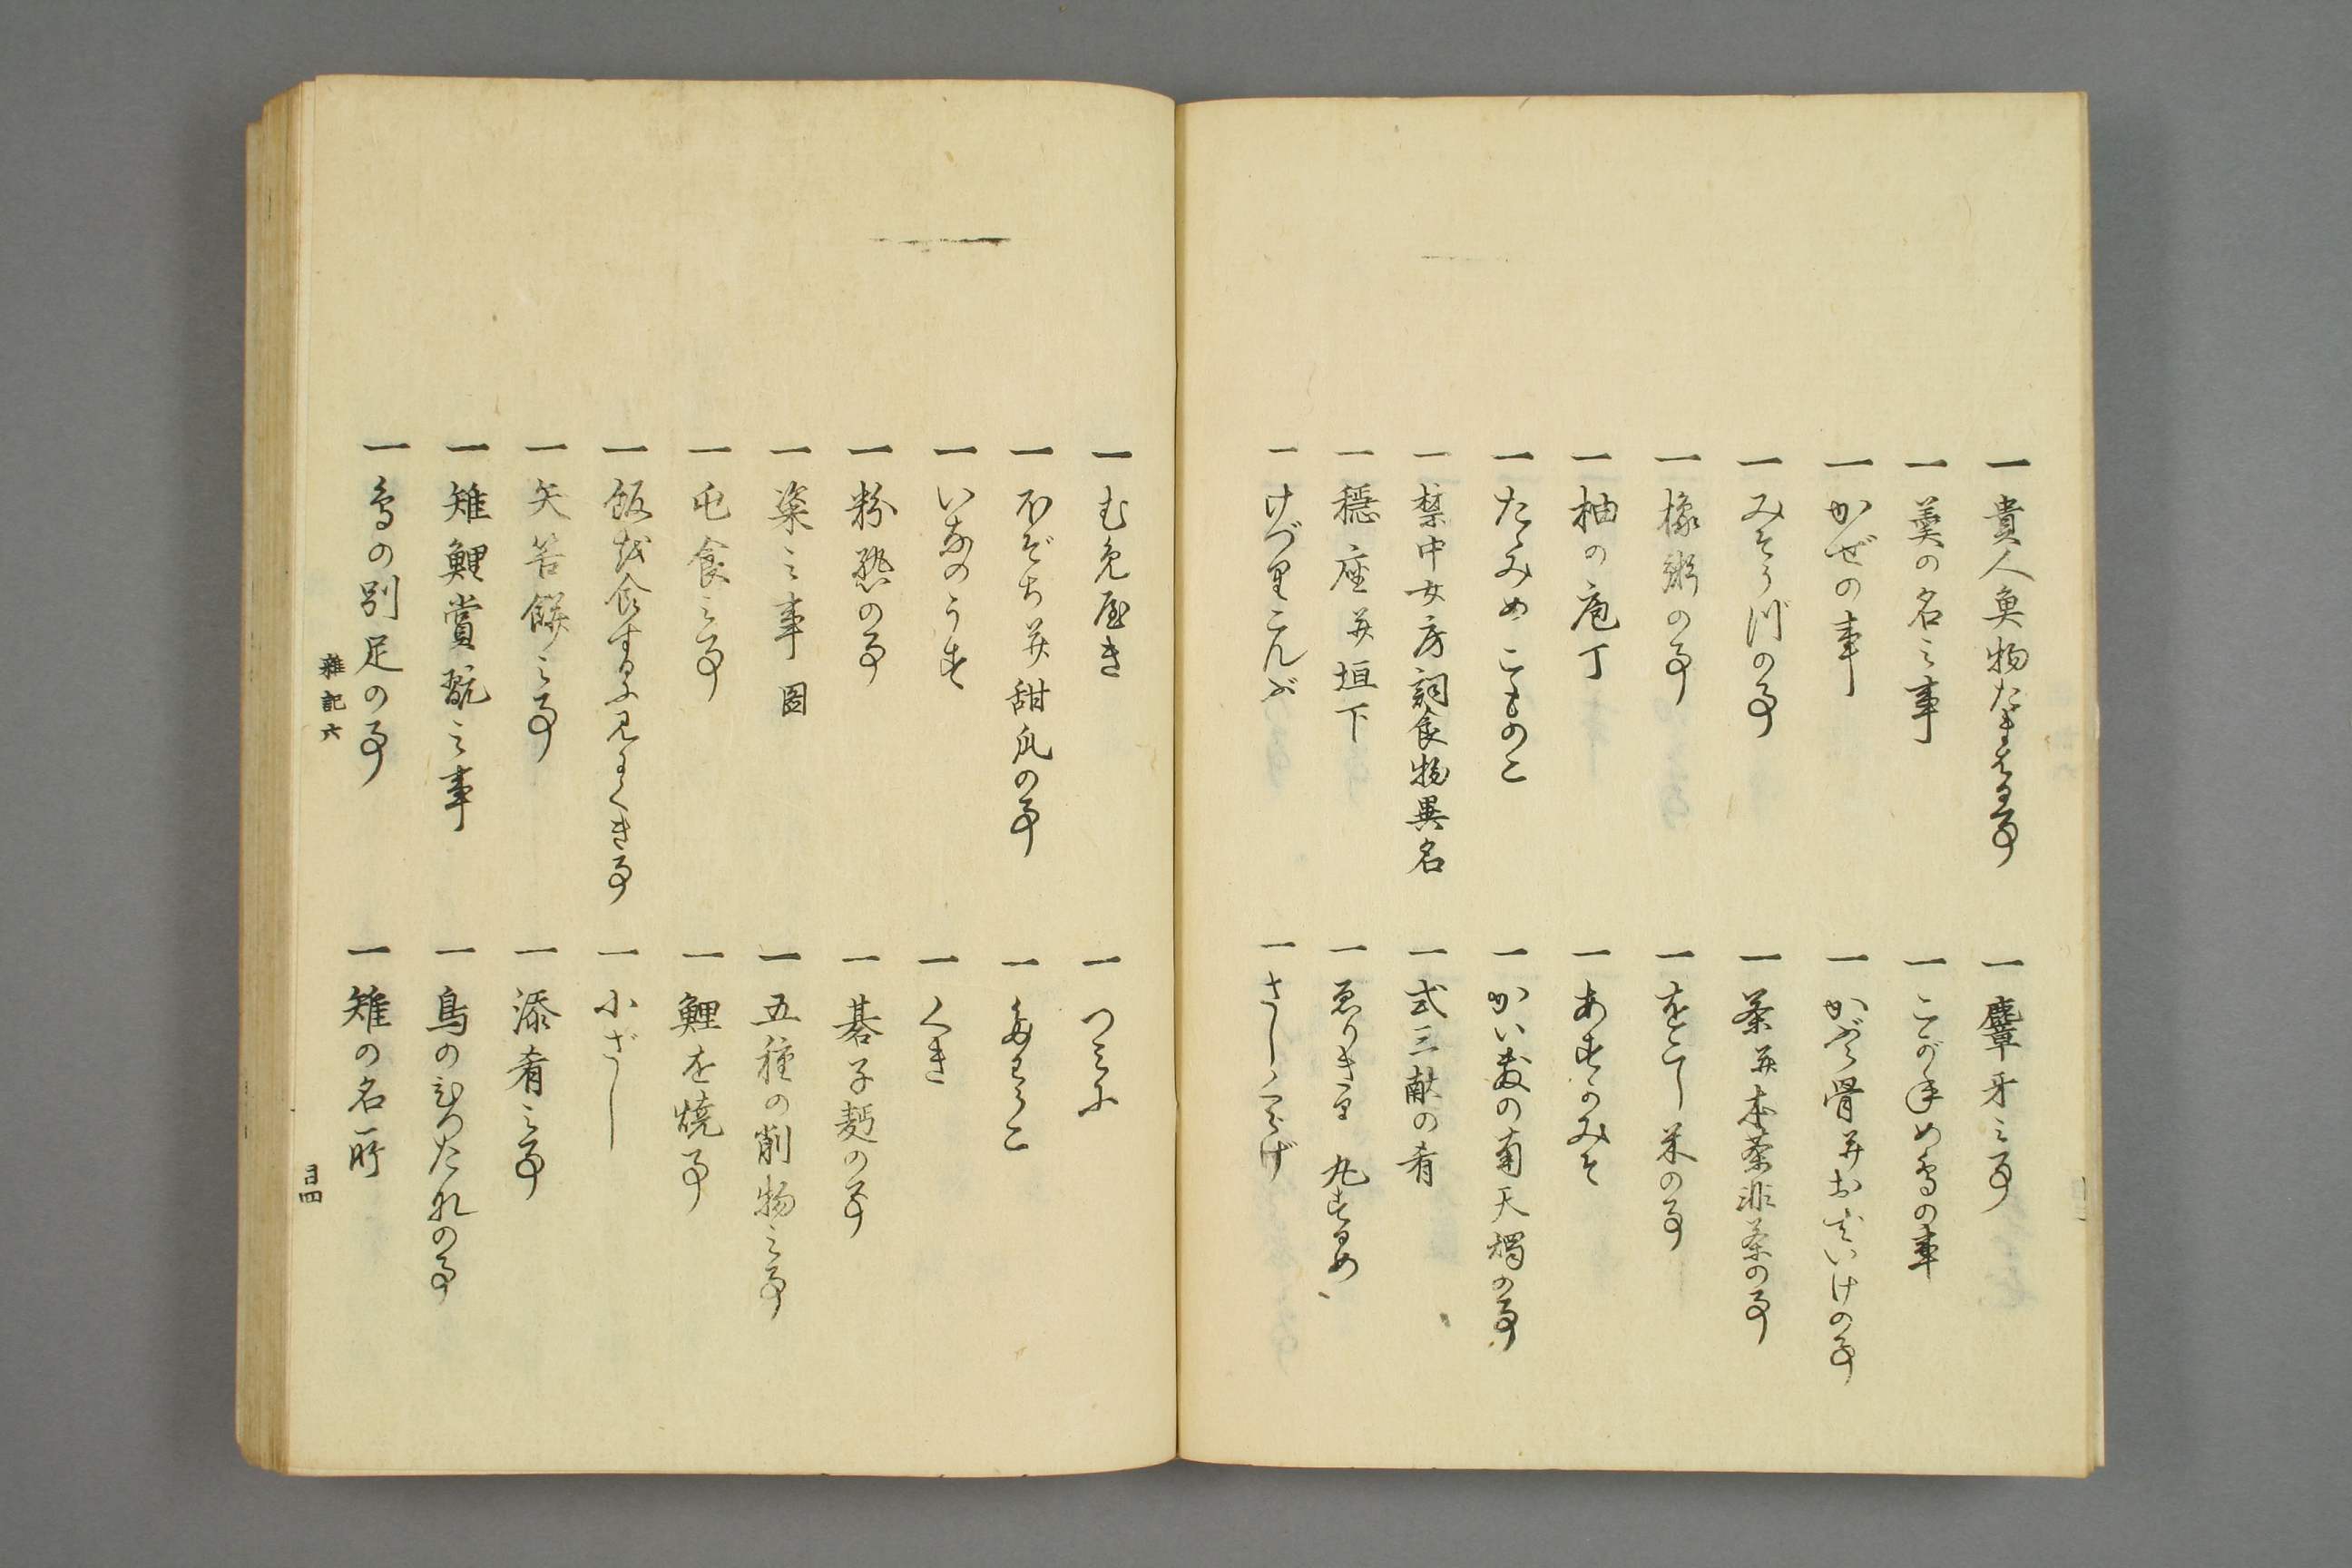 一貴人魚物たまはる事
一麞牙之事
一羹の名之事
一かぜの事
一かぶら骨并おいけの事
一みそうづの事
一茶并本茶非茶の事
一橡粥の事
一をこし米の事
一柚の庖丁
一あすかみそ
一たゝみめこものこ
一かい敷の南天燭の事
一禁中女房詞食物異名
一式三献の肴
一穏座并垣下
一ゑりきり 丸するめ
一けづりこんぶ
一さしくらげ
一むめ屋き
一つミに
一ほぞち并甜瓜の事
一たわらこ
一いなのうす
一くき
一粉熟の事
一碁子麺の事
一粢之事 図
一五種の削物之事
一屯食之事
一鯉を焼事
一飯を食するに見にくき事
一小ざし
一矢筈餅之事
一添肴之事
一雉鯉賞翫之事
一鳥のひつたれの事
一鳥の別足の事
一雉の名所
雑記六
目四